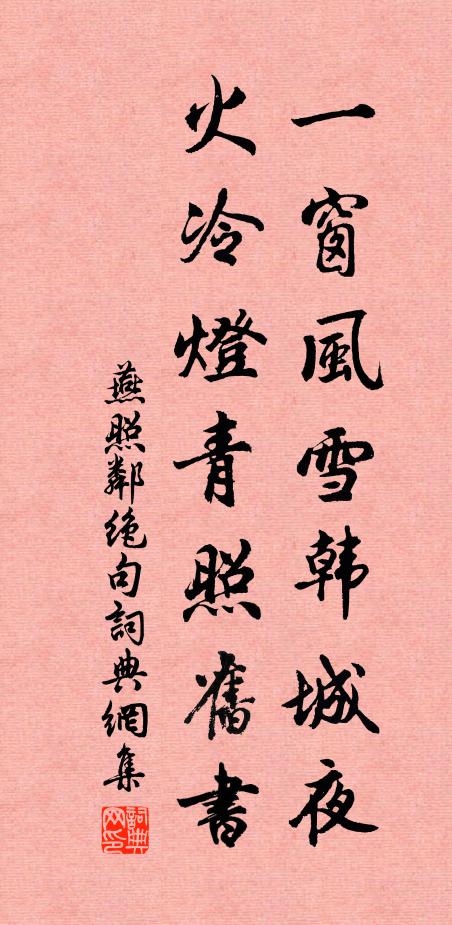 一窗風雪韩城夜
火冷燈青照舊書
燕照鄰絶句詞典網集
詞典网印